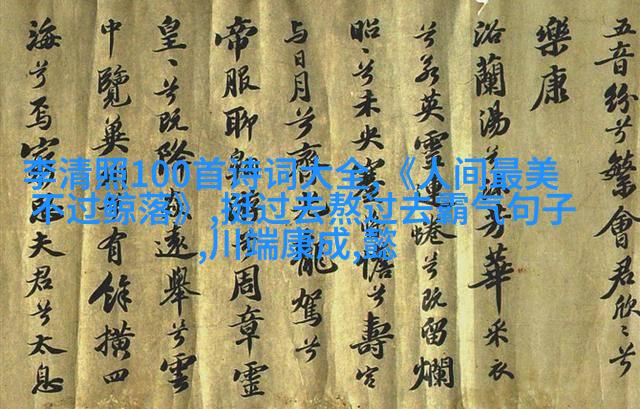 李清照100首诗词大全,《人间最美
不过鲸落》,挺过去熬过去霸气句子
,川端康成,懿
五音紛兮繁會君欣〻兮
樂康
浴蘭湯兮芳華采衣
兮若英靈蜷兮既留爛
昭〻兮未央蹇憺兮壽宮
與日月兮齊龍駕兮
帝服聊周章靈
皇〻兮既降遠舉兮雲
中覽冀有餘橫四
海兮焉窮夫君兮太息